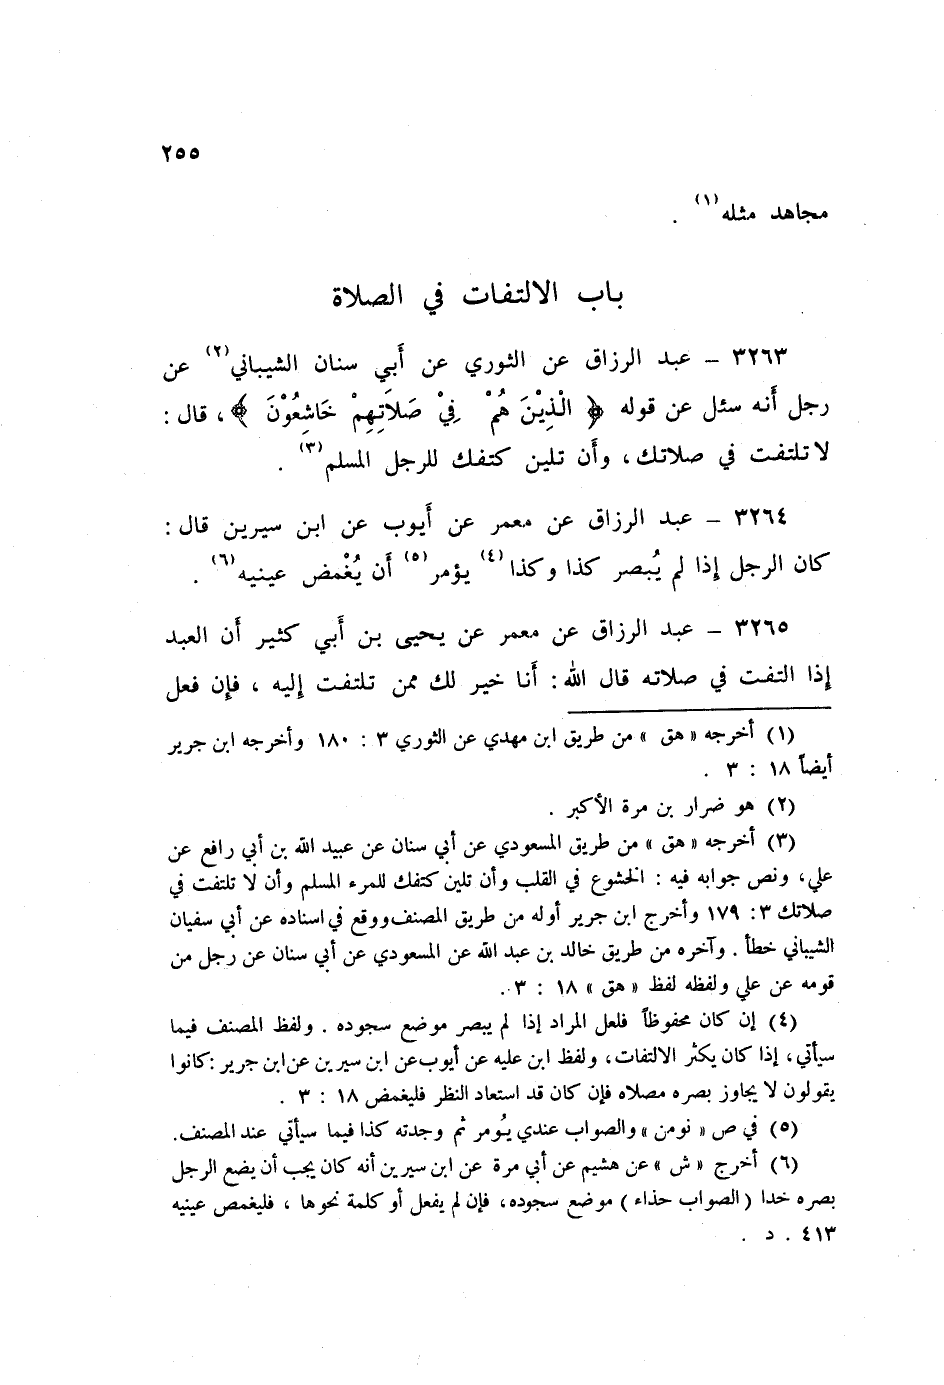 ٢٥٥
مجاهد مثله (١) .
باب الالتفات في الصلاة
٣٢٦٣ – عبد الرزاق عن الثوري عن أَبي سنان الشيباني (٢) عن
رجل أَنه سئل عن قوله ﴿ الَّذِيْنَ هُمْ فِيْ صَلَاتِهِمْ خَاشِعُوْنَ ﴾ ، قال :
لا تلتفت في صلاتك ، وأَن تلين كتفك للرجل المسلم (٣) .
٣٢٦٤ – عبد الرزاق عن معمر عن أَيوب عن ابن سيرين قال :
كان الرجل إذا لم يُبصر كذا وكذا (٤) يؤمر (٥) أَن يُغْمض عينيه (٦) .
٣٢٦٥ – عبد الرزاق عن معمر عن يحيى بن أَبي كثير أَن العبد
إذا التفت في صلاته قال الله : أَنا خير لك ممن تلتفت إليه ، فإن فعل
(١) أخرجه « هق » من طريق ابن مهدي عن الثوري ٣ : ١٨٠ وأخرجه ابن جرير
أيضاً ١٨ : ٣ .
(٢) هو ضرار بن مرة الأكبر .
(٣) أخرجه « هق » من طريق المسعودي عن أبي سنان عن عبيد الله بن أبي رافع عن
علي ، ونص جوابه فيه : الخشوع في القلب وأن تلين كتفك للمرء المسلم وأن لا تلتفت في
صلاتك ٣ : ١٧٩ وأخرج ابن جرير أوله من طريق المصنف ووقع في اسناده عن أبي سفيان
الشيباني خطأ . وآخره من طريق خالد بن عبد الله عن المسعودي عن أبي سنان عن رجل من
قومه عن علي ولفظه لفظ « هق » ١٨ : ٣ .
(٤) إن كان محفوظاً فلعل المراد إذا لم يبصر موضع سجوده . ولفظ المصنف فيما
سيأتي ، إذا كان يكثر الالتفات ، ولفظ ابن عليه عن أيوب عن ابن سيرين عن ابن جرير : كانوا
يقولون لا يجاوز بصره مصلاه فإن كان قد استعاد النظر فليغمض ١٨ : ٣ .
(٥) في ص « نومن » والصواب عندي يُومر ثم وجدته كذا فيما سيأتي عند المصنف .
(٦) أخرج « ش » عن هشيم عن أبي مرة عن ابن سيرين أنه كان يجب أن يضع الرجل
بصره خدا ( الصواب حذاء ) موضع سجوده ، فإن لم يفعل أو كلمة نحوها ، فليغمص عينيه
٤١٣ . د .